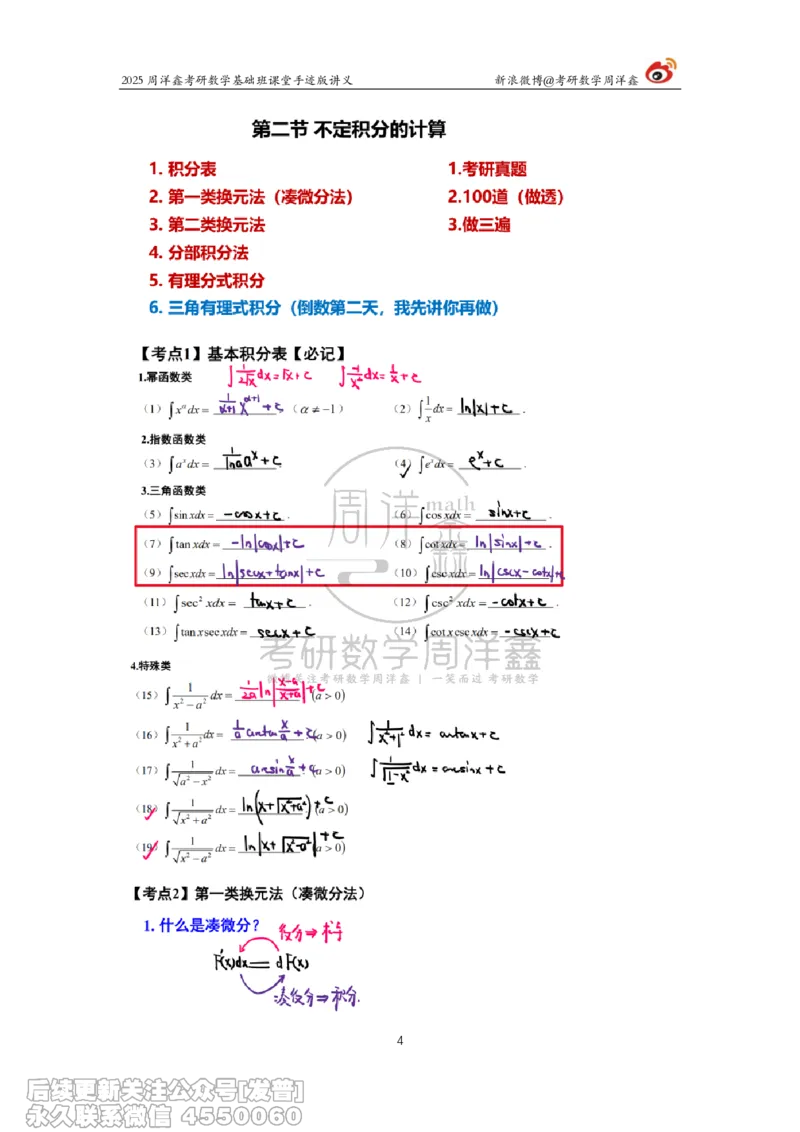 2025 周洋鑫考研数学基础班课堂手迹版讲义 新浪微博@考研数学周洋鑫
第二节 不定积分的计算
1. 积分表 1.考研真题
2. 第一类换元法（凑微分法） 2.100道（做透）
3. 第二类换元法 3.做三遍
4. 分部积分法
5. 有理分式积分
6. 三角有理式积分（倒数第二天，我先讲你再做）
【考点1】基本积分表【必记】
1.幂函数类 ∫1/(2√x)dx=√x+C ∫-1/x²dx=1/x+C
（1）∫x^α dx= 1/(α+1) x^(α+1)+C （α≠-1） （2）∫1/x dx= ln|x|+C .
2.指数函数类
（3）∫a^x dx= 1/lna a^x+C . （4）∫e^x dx= e^x+C .
3.三角函数类
（5）∫sin xdx= -cosx+C . （6）∫cos xdx= sinx+C .
（7）∫tan xdx= -ln|cosx|+C （8）∫cot xdx= ln|sinx|+C .
（9）∫sec xdx= ln|secx+tanx|+C （10）∫csc xdx= ln|cscx-cotx|+
（11）∫sec² xdx= tanx+C . （12）∫csc² xdx= -cotx+C .
（13）∫tan x sec xdx= secx+C （14）∫cot x csc xdx= -cscx+C
4.特殊类
（15）∫1/(x²-a²) dx= 1/2a ln|(x-a)/(x+a)|+C (a>0)
（16）∫1/(x²+a²) dx= 1/a arctan x/a +C (a>0) ∫1/(x²+1²) dx= arctanx+C
（17）∫1/√(a²-x²) dx= arcsin x/a +C (a>0) ∫1/√(1-x²) dx=arcsinx+C
（18）∫1/√(x²+a²) dx= ln(x+√(x²+a²))+C (a>0)
（19）∫1/√(x²-a²) dx= ln|x+√(x²-a²)|+C (a>0)
【考点2】第一类换元法（凑微分法）
1. 什么是凑微分？ 微分⇒求导
F'(x)dx=dF(x)
凑微分⇒积分.
4
周洋鑫
math
考研数学周洋鑫
微博关注考研数学周洋鑫 | 一笑而过 考研数学
后续更新关注公众号[发普]
永久联系微信 4550060